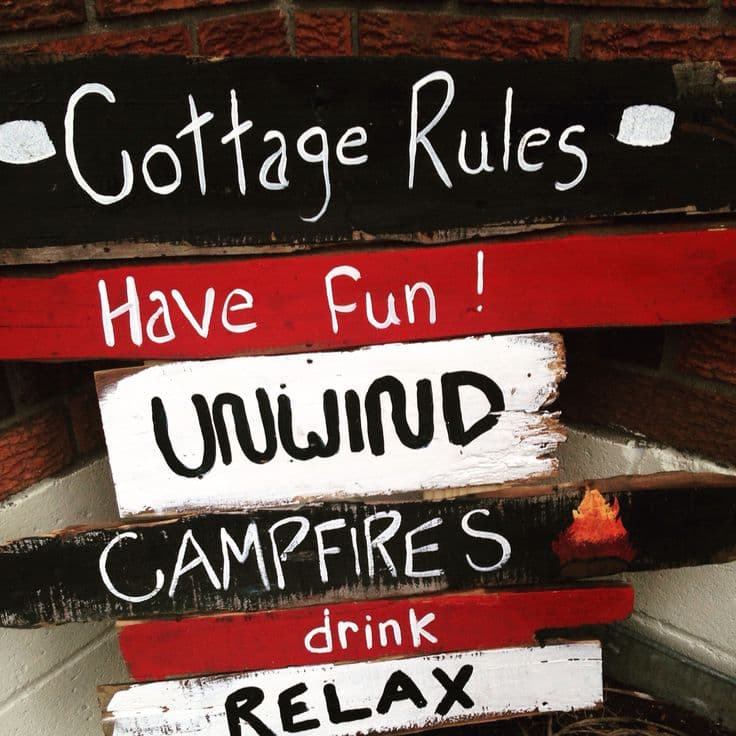 Cottage Rules
Have Fun !
UNWIND
CAMPFIRES
drink
RELAX